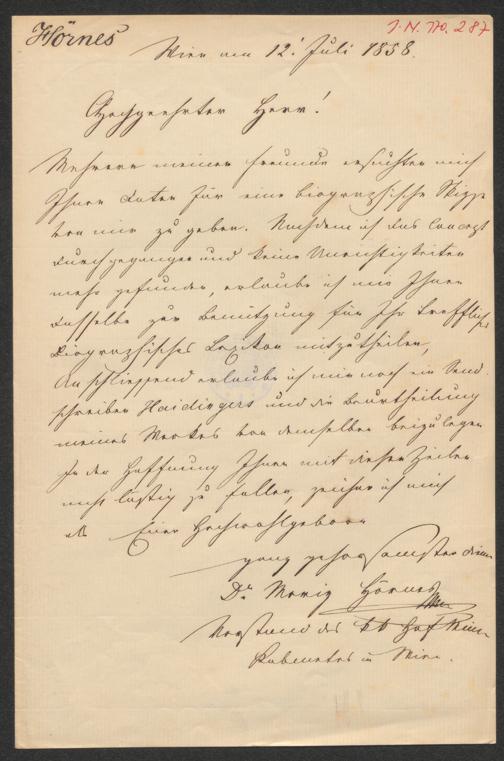 Hörnes
J. N. No. 287
Wien am 12. Juli 1858.
Hochgeehrter Herr!
Mehrere meiner Freunde ersuchten mich
Ihnen Daten für eine biographische Skizze
von mir zu geben. Nachdem ich das Concept
durchgegangen und keine Unrichtigkeiten
mehr gefunden, erlaube ich mir Ihnen
dasselbe zur Benützung für Ihr treffliches
Biographisches Lexikon mitzutheilen,
Anschliessend erlaube ich mir noch ein Send-
schreiben Haidingers und die Beurtheilung
meines Werkes von demselben beizulegen
In der Hoffnung Ihnen mit diesen Zeilen
nicht lästig zu fallen, zeichne ich mich
als Euer Hochwohlgeboren
ganz gehorsamster Diener
Dr Moriz Hörnes
Vorstand des kk Hof Min.
Kabinetes in Wien.